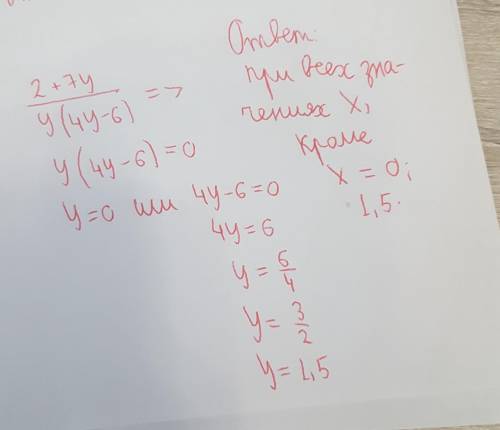 2+7y
y(4y-6) =>
y(4y-6)=0
y=0 или 4y-6=0
4y=6
y = 6/4
y = 3/2
y = 1,5
Ответ:
при всех зна-
чениях x,
кроме
x = 0;
1,5.